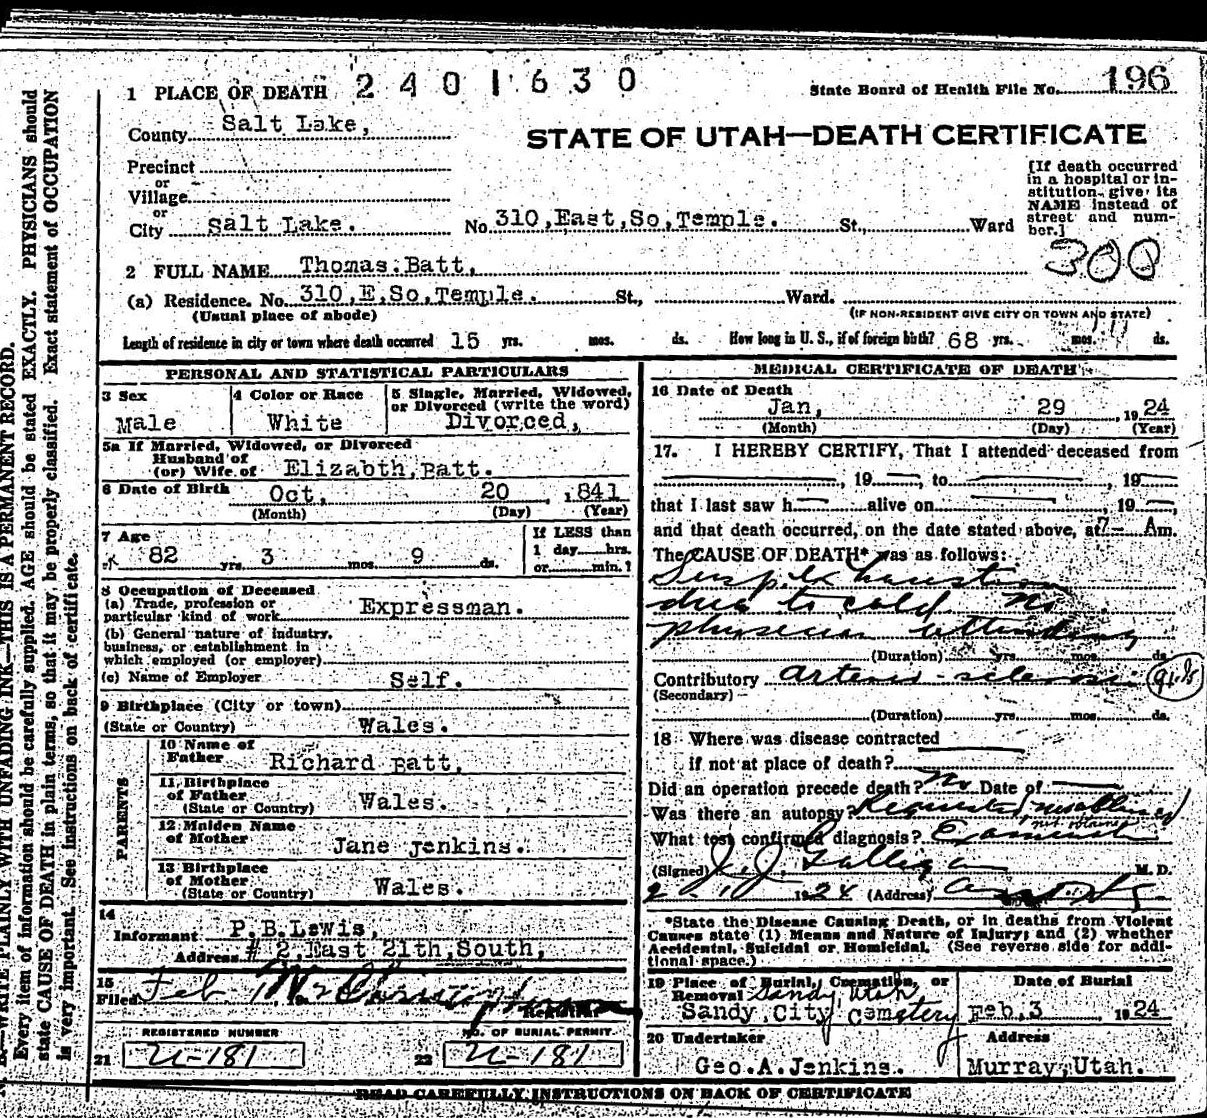 N. B.—WRITE PLAINLY WITH UNFADING INK—THIS IS A PERMANENT RECORD.
Every item of information should be carefully supplied. AGE should be stated EXACTLY. PHYSICIANS should
state CAUSE OF DEATH in plain terms, so that it may be properly classified. Exact statement of OCCUPATION
is very important. See instructions on back of certificate.
1 PLACE OF DEATH 2401630
State Board of Health File No. 196
County Salt Lake,
STATE OF UTAH—DEATH CERTIFICATE
Precinct
or
Village
or
City Salt Lake. No. 310,East,So,Temple. St., Ward
[If death occurred
in a hospital or in-
stitution give its
NAME instead of
street and num-
ber.]
300
2 FULL NAME Thomas.Batt,
(a) Residence. No. 310,E,So,Temple. St., Ward.
(Usual place of abode) (IF NON-RESIDENT GIVE CITY OR TOWN AND STATE)
Length of residence in city or town where death occurred 15 yrs. mos. ds. How long in U. S., if of foreign birth? 68 yrs. mos. ds.
PERSONAL AND STATISTICAL PARTICULARS
3 Sex
Male
4 Color or Race
White
5 Single, Married, Widowed,
or Divorced (write the word)
Divorced,
5a If Married, Widowed, or Divorced
Husband of
(or) Wife of Elizabth,Batt.
6 Date of Birth Oct, 20 ,841
(Month) (Day) (Year)
7 Age
82 yrs. 3 mos. 9 ds.
If LESS than
1 day hrs.
or min.?
8 Occupation of Deceased
(a) Trade, profession or
particular kind of work Expressman.
(b) General nature of industry,
business, or establishment in
which employed (or employer)
(c) Name of Employer Self.
9 Birthplace (City or town)
(State or Country) Wales.
PARENTS
10 Name of
Father Richard Batt,
11 Birthplace
of Father
(State or Country) Wales.
12 Maiden Name
of Mother Jane Jenkins.
13 Birthplace
of Mother
(State or Country) Wales.
14
Informant P.B.Lewis,
Address # 2,East 21th,South,
15
Filed Feb
Registrar
REGISTERED NUMBER
21 U-181
NO. OF BURIAL PERMIT
22 U-181
MEDICAL CERTIFICATE OF DEATH
16 Date of Death
Jan, 29 , 1924
(Month) (Day) (Year)
17. I HEREBY CERTIFY, That I attended deceased from
, 19 , to , 19
that I last saw h alive on , 19 ,
and that death occurred, on the date stated above, at 7- Am.
The CAUSE OF DEATH* was as follows:
exhaustion
due to cold No
physician attending
(Duration) yrs. mos. ds.
Contributory Arterio-sclerosis
(Secondary)
(Duration) yrs. mos. ds.
18 Where was disease contracted
if not at place of death?
Did an operation precede death? No Date of
Was there an autopsy? Requested
What test confirmed diagnosis?
(Signed) J. J. Galligan M. D.
1924 (Address)
*State the Disease Causing Death, or in deaths from Violent
Causes state (1) Means and Nature of Injury; and (2) whether
Accidental, Suicidal or Homicidal. (See reverse side for addi-
tional space.)
19 Place of Burial, Cremation, or
Removal Sandy, Utah
Sandy City Cemetery
Date of Burial
Feb,3 1924
20 Undertaker
Geo.A.Jenkins.
Address
Murray,Utah.
READ CAREFULLY INSTRUCTIONS ON BACK OF CERTIFICATE